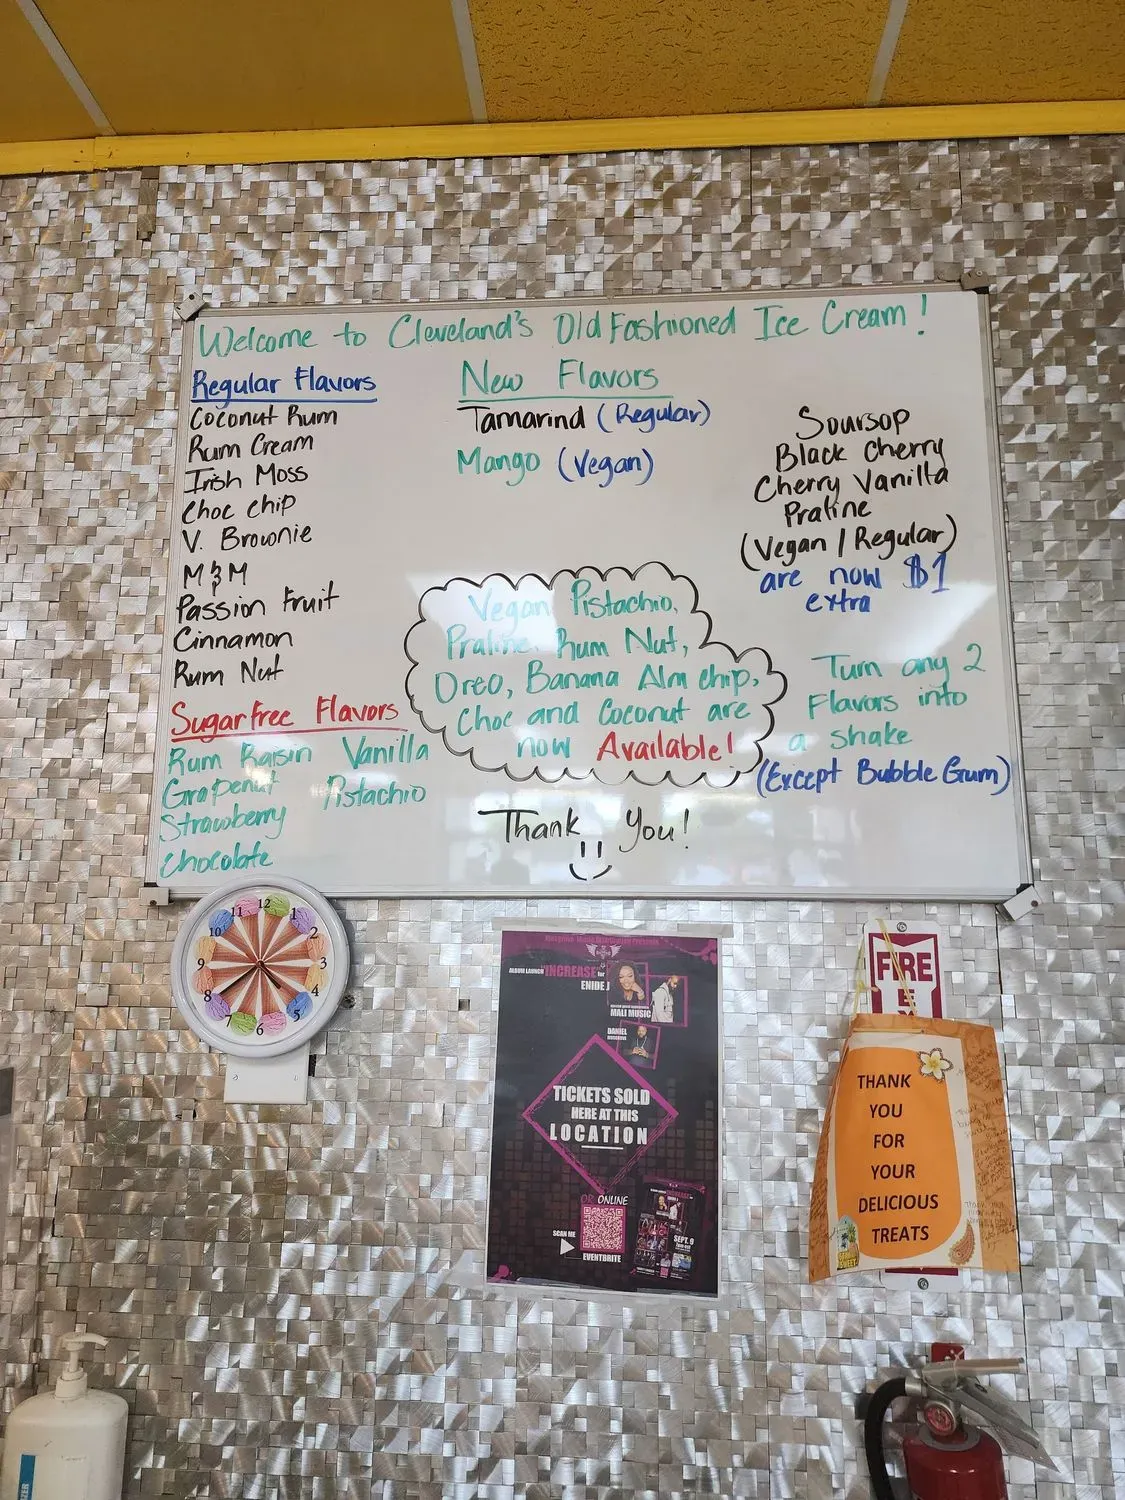 Welcome to Cleveland's Old Fashioned Ice Cream!
Regular Flavors
Coconut Rum
Rum Cream
Irish Moss
Choc chip
V. Brownie
M & M
Passion Fruit
Cinnamon
Rum Nut
Sugarfree Flavors
Rum Raisin Vanilla
Grapenut Pistachio
Strawberry
Chocolate
New Flavors
Tamarind (Regular)
Mango (Vegan)
Vegan Pistachio,
Praline, Rum Nut,
Oreo, Banana Alm chip,
Choc and Coconut are
now Available!
Thank You!
Soursop
Black Cherry
Cherry Vanilla
Praline
(Vegan / Regular)
are now $1
extra
Turn any 2
Flavors into
a shake
(Except Bubble Gum)
12
1
2
3
4
5
6
7
8
9
10
11
ALBUM LAUNCH "INCREASE" for
ENIDE J
MALI MUSIC
DANIEL
TICKETS SOLD
HERE AT THIS
LOCATION
OR ONLINE
SCAN ME
EVENTBRITE
SEPT. 9
FIRE
THANK
YOU
FOR
YOUR
DELICIOUS
TREATS